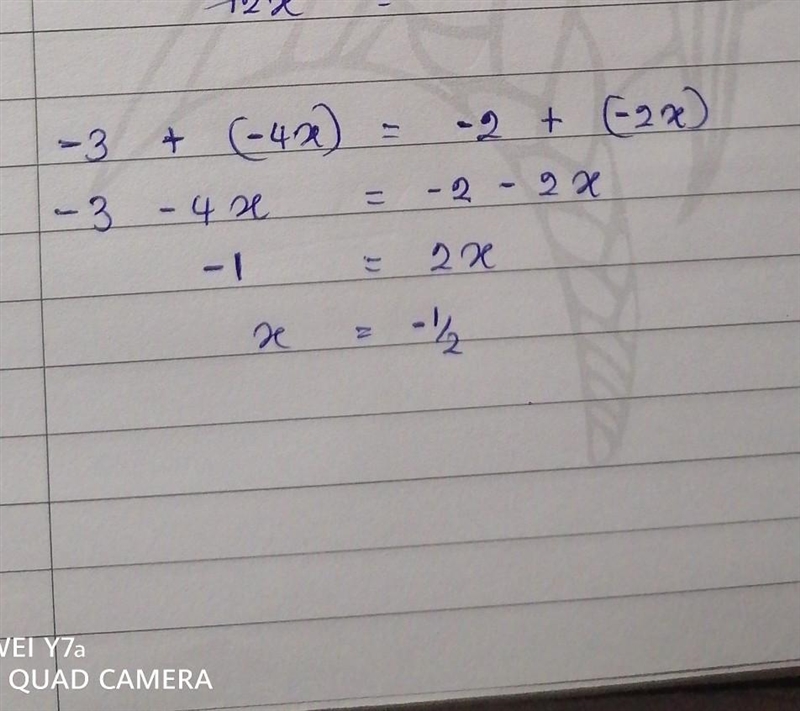 12x =
-3 + (-4x) = -2 + (-2x)
-3 - 4x = -2 - 2x
-1 = 2x
x = -1/2
WEI Y7a
QUAD CAMERA